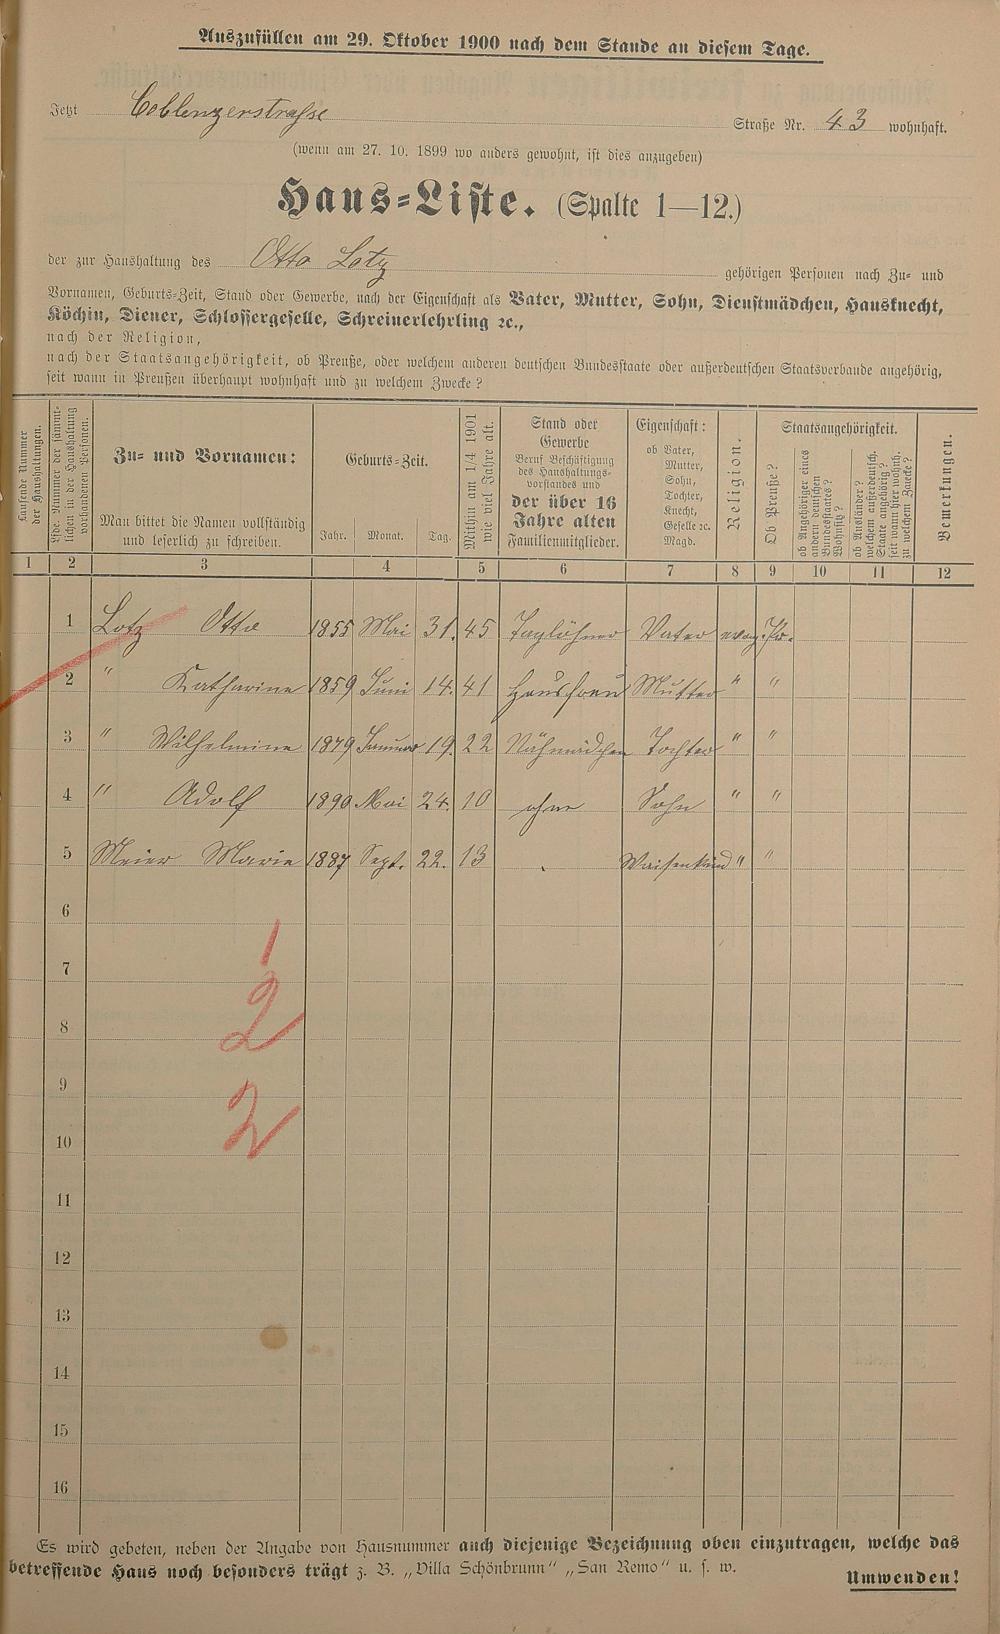 Auszufüllen am 29. Oktober 1900 nach dem Stande an diesem Tage.
Jetzt Coblenzerstrasse Straße Nr. 43 wohnhaft.
(wenn am 27. 10. 1899 wo anders gewohnt, ist dies anzugeben)
Haus=Liste. (Spalte 1—12.)
der zur Haushaltung des Otto Lotz gehörigen Personen nach Zu- und
Vornamen, Geburts=Zeit, Stand oder Gewerbe, nach der Eigenschaft als Vater, Mutter, Sohn, Dienstmädchen, Hausknecht,
Köchin, Diener, Schlossergeselle, Schreinerlehrling ꝛc.,
nach der Religion,
nach der Staatsangehörigkeit, ob Preuße, oder welchem anderen deutschen Bundesstaate oder außerdeutschen Staatsverbande angehörig,
seit wann in Preußen überhaupt wohnhaft und zu welchem Zwecke?
Laufende Nummer
der Haushaltungen.
Lfde. Nummer der sämmt-
lichen in der Haushaltung
vorhandenen Personen.
Zu= und Vornamen:
Man bittet die Namen vollständig
und leserlich zu schreiben.
Geburts=Zeit.
Jahr. Monat. Tag.
Mithin am 1/4 1901
wie viel Jahre alt.
Stand oder
Gewerbe
Beruf Beschäftigung
des Haushaltungs-
vorstandes und
der über 16
Jahre alten
Familienmitglieder.
Eigenschaft:
ob Vater,
Mutter,
Sohn,
Tochter,
Knecht,
Geselle ꝛc.
Magd.
Religion.
Staatsangehörigkeit.
Ob Preuße?
ob Angehöriger eines
andern deutschen
Bundesstaates?
Wohnsitz?
ob Ausländer?
welchem außerdeutsch.
Staate angehörig?
seit wann hier wohnh.
zu welchem Zwecke?
Bemerkungen.
1 2 3 4 5 6 7 8 9 10 11 12
1 Lotz Otto 1855 Mai 31. 45 Taglöhner Vater evang. Pr.
2 " Katharine 1859 Juni 14. 41 Hausfrau Mutter " "
3 " Wilhelmine 1879 Januar 19. 22 Nähmädchen Tochter " "
4 " Adolf 1890 Mai 24. 10 ohne Sohn " "
5 Meier Marie 1887 Sept. 22. 13 Waisenkind " "
6
1
7
2
8
9
2
10
11
12
13
14
15
16
Es wird gebeten, neben der Angabe von Hausnummer auch diejenige Bezeichnung oben einzutragen, welche das
betreffende Haus noch besonders trägt z. B. „Villa Schönbrunn“ „San Remo“ u. s. w.
Umwenden!